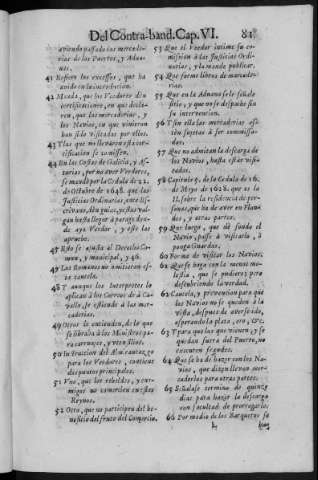 Del Contra-band. Cap. VI. 81
aviendo passado las mercade-
rias de los Puertos, y Adua-
nas.
41 Refiere los excessos, que ha
avido en la introduccion.
42 Manda, que los Veedores dèn
certificaciones, en que decla-
ren, que las mercaderias, y
los Navios, en que vinieron
han sido visitados por ellos.
43 Y las que no llevaren esta cer-
tificacion se comissen.
44 En las Costas de Galicia, y As-
turias, por no aver Veedores,
se mandò por la Cedula de 22.
de Octubre de 1648. que las
Justicias Ordinarias, ante Es-
crivano,
hasta llegar à parage don-
de aya Veedor, y este las
apruebe.
47 Esto se ajusta al Derecho Co-
mun, y municipal, y 46.
47 Los Romanos no
ta cautela.
48 Y aunque los Interpretes lo
aplican à los Correos de à Ca-
vallo, se estiende à las mer-
caderias.
49 Otros lo entienden, de lo que
se libraba à los Ministros pa-
ra carruages, y utensilios.
50 Instruccion del Almirantazgo
para los Veedores, contiene
dos puntos principales.
51 Uno, que los rebeldes, y ene-
migos no comercien en estos
Reynos.
52 Otro, que no participen del be-
neficio del fruto del Comercio.
53 Que el Veedor intime su co-
mission à las Justicias Ordi-
narias, y la mande publicar.
54 Que forme libros de mercade-
rias.
55 Que en la Aduana se le señale
sitio, y que no se despache sin
su intervencion.
56 Y sin ella las mercaderias es-
tèn sujetas à ser comissa-
das.
57 Que no admitan la descarga de
los Navios, hasta estàr visi-
tados.
58 Capitulo 5. de la Cedula de 16.
de Mayo de 1628. que es la
II. sobre la residencia de per-
sonas, que ha de aver en Flan-
des, y otras partes.
59 Que luego, que dè fondo el
Navio, passe à visitarle, ò
ponga Guardas.
60 Forma de visitar los Navios.
61 Que se haga con la menos mo-
lestia, que se pudiere; pero
descubriendo la verdad.
62 Cautela, y prevencion para que
los Navios no se queden à la
vista, despues de averse ido,
esperando la plata, oro, &c.
63 Y para que los que vienen, y se
quedan fuera del Puerto, no
executen fraudes.
64 Que se ha de hazer con los Na-
vios, que dizen llevan mer-
caderias para otras partes.
65 Señalase termino de quinze
dias para hazer la descarga
con facultad de prorrogarle.
66 Por medio de los Barquetes se
L